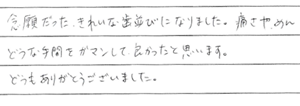 念願だった、きれいな歯並びになりました。痛さや、めん
どうな手間をガマンして良かったと思います。
どうもありがとうございました。